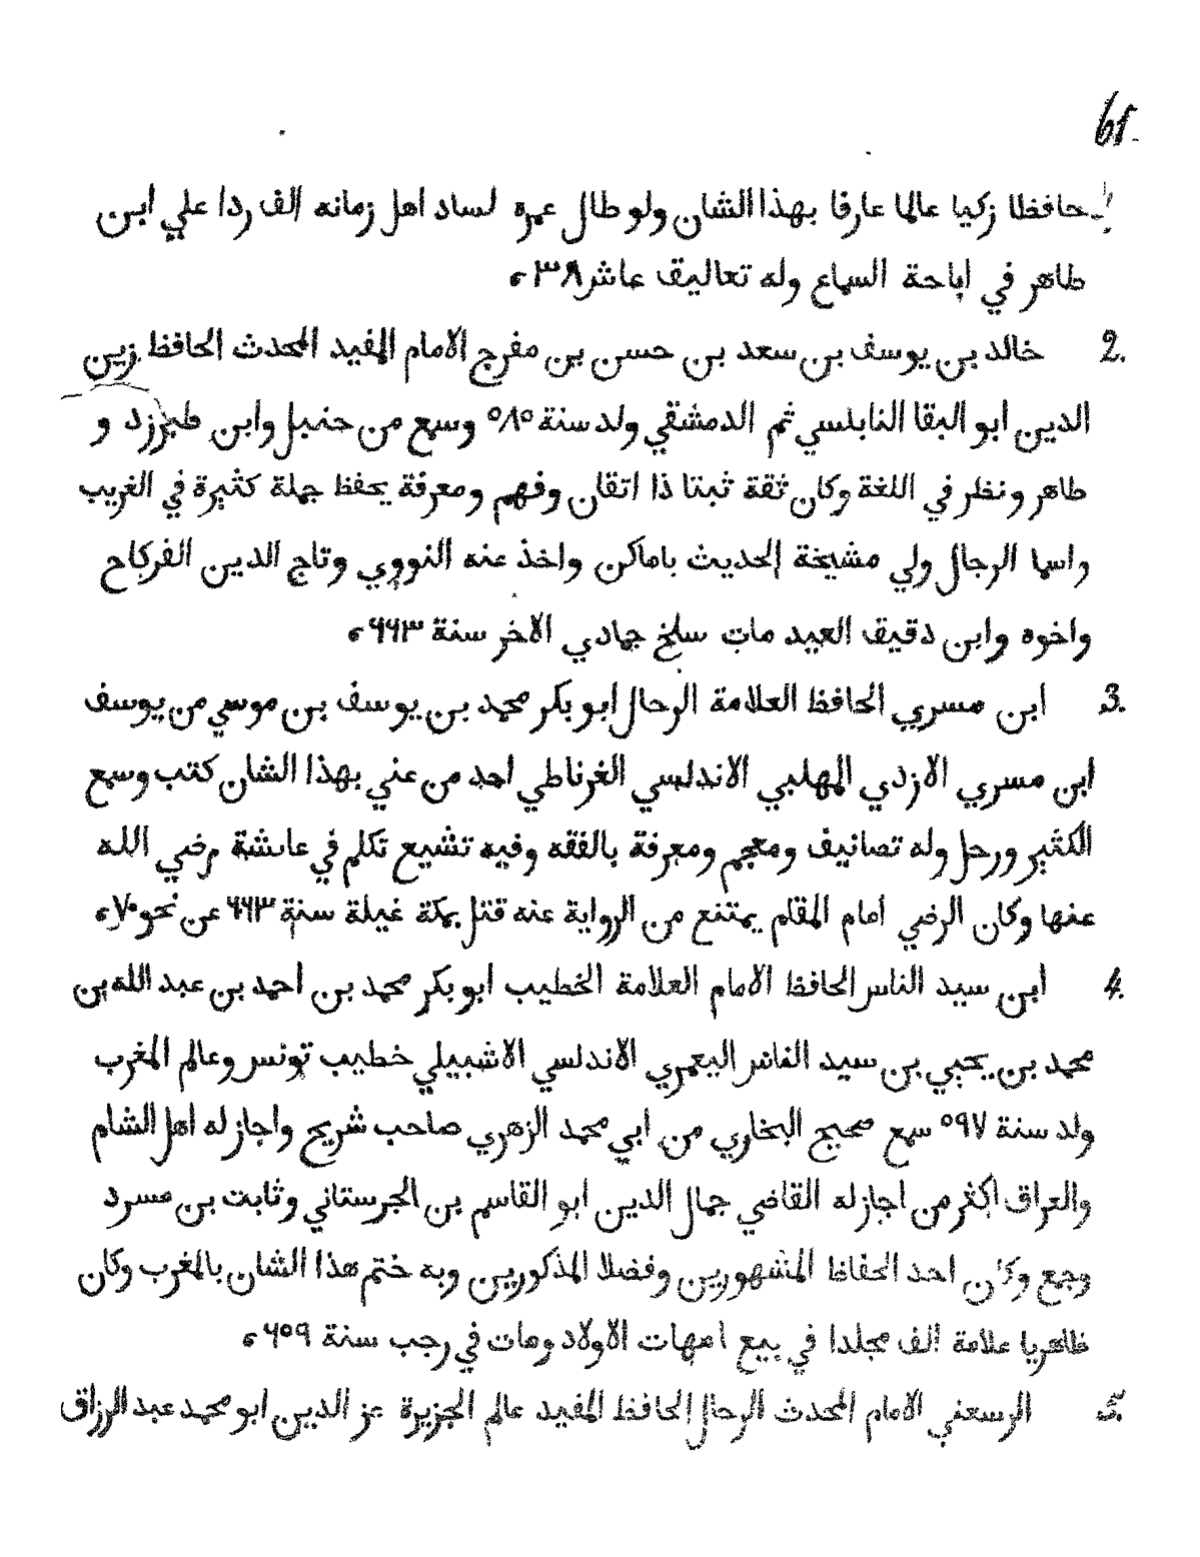 61.
1. حافظا زكيا عالما عارفا بهذا الشان ولو طال عمره لساد اهل زمانه الف ردا علي ابن
طاهر في اباحة السماع وله تعاليق عاش ٣٨ ه
2. خالد بن يوسف بن سعد بن حسن بن مفرج الامام المفيد المحدث الحافظ زين
الدين ابو البقا النابلسي ثم الدمشقي ولد سنة ٥٨٥ وسمع من حنبل وابن طبرزد و
طاهر ونظر في اللغة وكان ثقة ثبتا ذا اتقان وفهم ومعرفة يحفظ جملة كثيرة في الغريب
واسما الرجال ولي مشيخة الحديث باماكن واخذ عنه النووي وتاج الدين الفركاح
واخوه وابن دقيق العيد مات سلخ جمادي الاخر سنة ٦٦٣ ه
3. ابن مسري الحافظ العلامة الرحال ابو بكر محمد بن يوسف بن موسي من يوسف
ابن مسري الازدي المهلبي الاندلسي الغرناطي احد من عني بهذا الشان كتب وسمع
الكثير ورحل وله تصانيف ومعجم ومعرفة بالفقه وفيه تشيع تكلم في عايشة رضي الله
عنها وكان الرضي امام المقام يمتنع من الرواية عنه قتل بمكة غيلة سنة ٦٦٣ عن نحو ٧٠ ه
4. ابن سيد الناس الحافظ الامام العلامة الخطيب ابو بكر محمد بن احمد بن عبد الله بن
محمد بن يحيي بن سيد الناس اليعمري الاندلسي الاشبيلي خطيب تونس وعالم المغرب
ولد سنة ٥٩٧ سمع صحيح البخاري من ابي محمد الزهري صاحب شريح واجاز له اهل الشام
والعراق اكثر من اجاز له القاضي جمال الدين ابو القاسم بن الحرستاني وثابت بن مسرد
وجمع وكان احد الحفاظ المشهورين وفضلا المذكورين وبه ختم هذا الشان بالمغرب وكان
ظاهريا علامة الف مجلدا في بيع امهات الاولاد ومات في رجب سنة ٦٥٩ ه
5. الرسعني الامام المحدث الرحال الحافظ المفيد عالم الجزيرة عز الدين ابو محمد عبد الرزاق